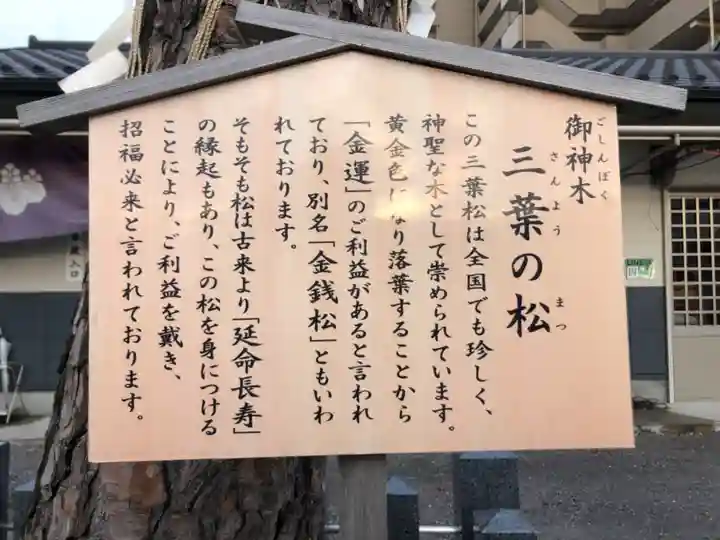 御神木
ごしんぼく
三葉の松
さんよう
まつ
この三葉松は全国でも珍しく、
神聖な木として崇められています。
黄金色になり落葉することから
「金運」のご利益があると言われ
ており、別名「金銭松」ともいわ
れております。
そもそも松は古来より「延命長寿」
の縁起もあり、この松を身につける
ことにより、ご利益を戴き、
招福必来と言われております。
入口